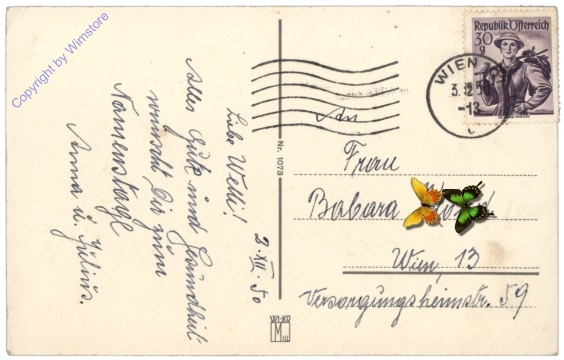 Copyright by Wimstore
Liebe Welli!
Alles Gute und Gesundheit
wünscht Dir zum
Namenstage
Anna u. Julius.
2.XII.50
Nr. 1073
WI-KO
MIII
Republik Österreich
30
g
WIEN
3.12.50
-13
An
Frau
Babara
Wien, 13
Versorgungsheimstr. 59